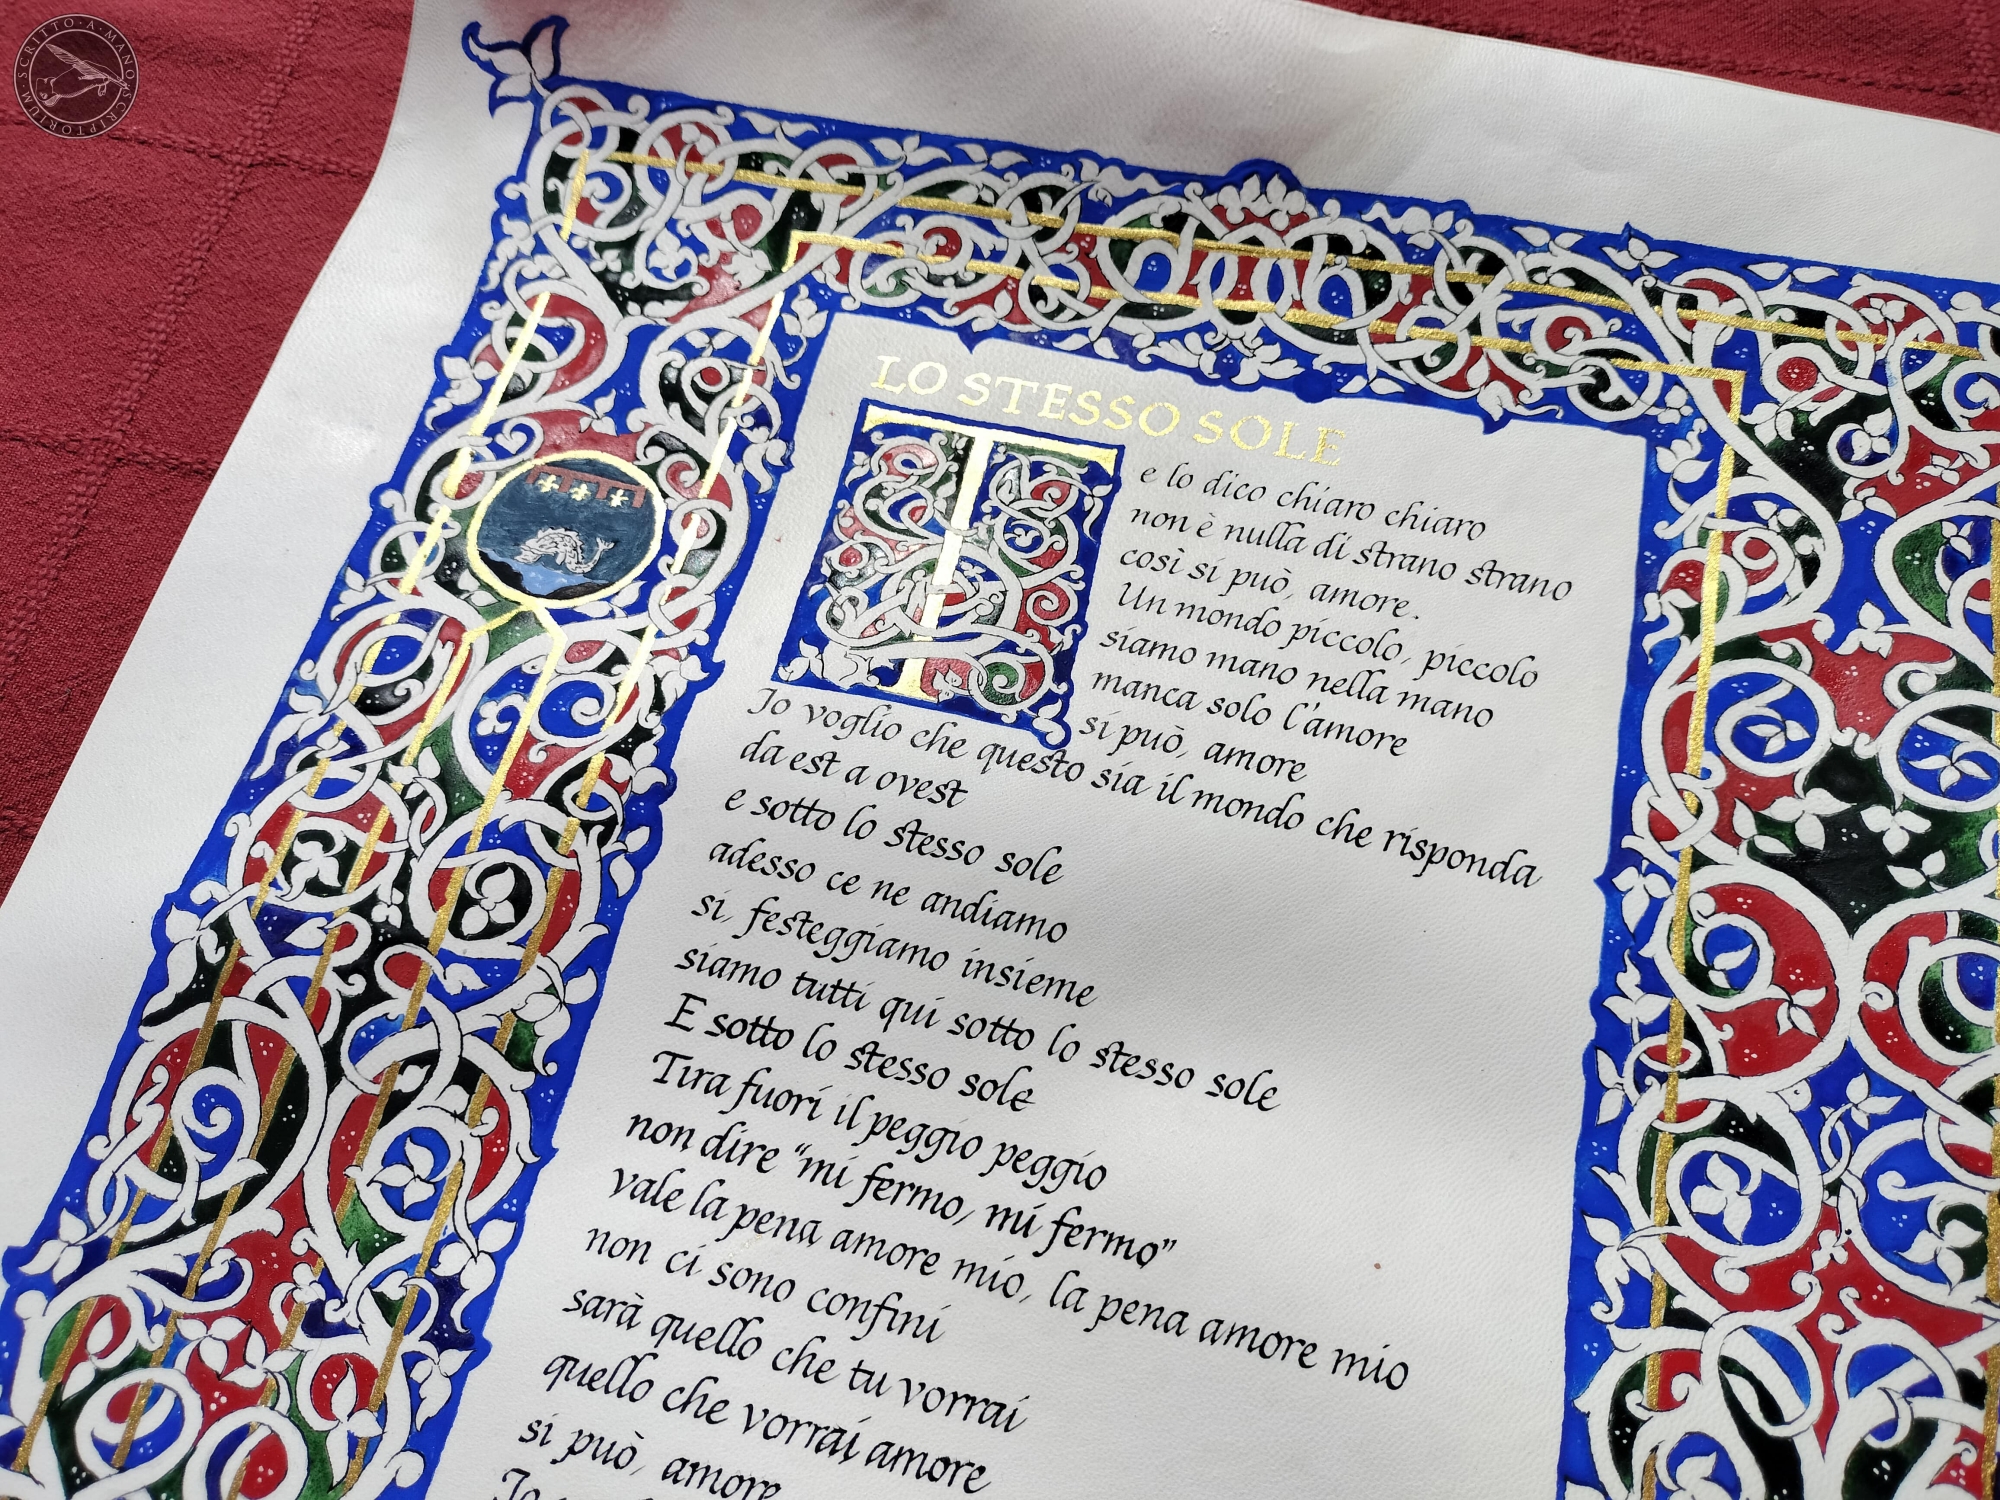 SCRITTO·A·MANO·SCRIPTORIUM
LO STESSO SOLE
Te lo dico chiaro chiaro
non è nulla di strano strano
così si può, amore.
Un mondo piccolo, piccolo
siamo mano nella mano
manca solo l'amore
si può, amore
Io voglio che questo sia il mondo che risponda
da est a ovest
e sotto lo stesso sole
adesso ce ne andiamo
si, festeggiamo insieme
siamo tutti qui sotto lo stesso sole
E sotto lo stesso sole
Tira fuori il peggio peggio
non dire “mi fermo, mi fermo”
vale la pena amore mio, la pena amore mio
non ci sono confini
sarà quello che tu vorrai
quello che vorrai amore
si può, amore
Io